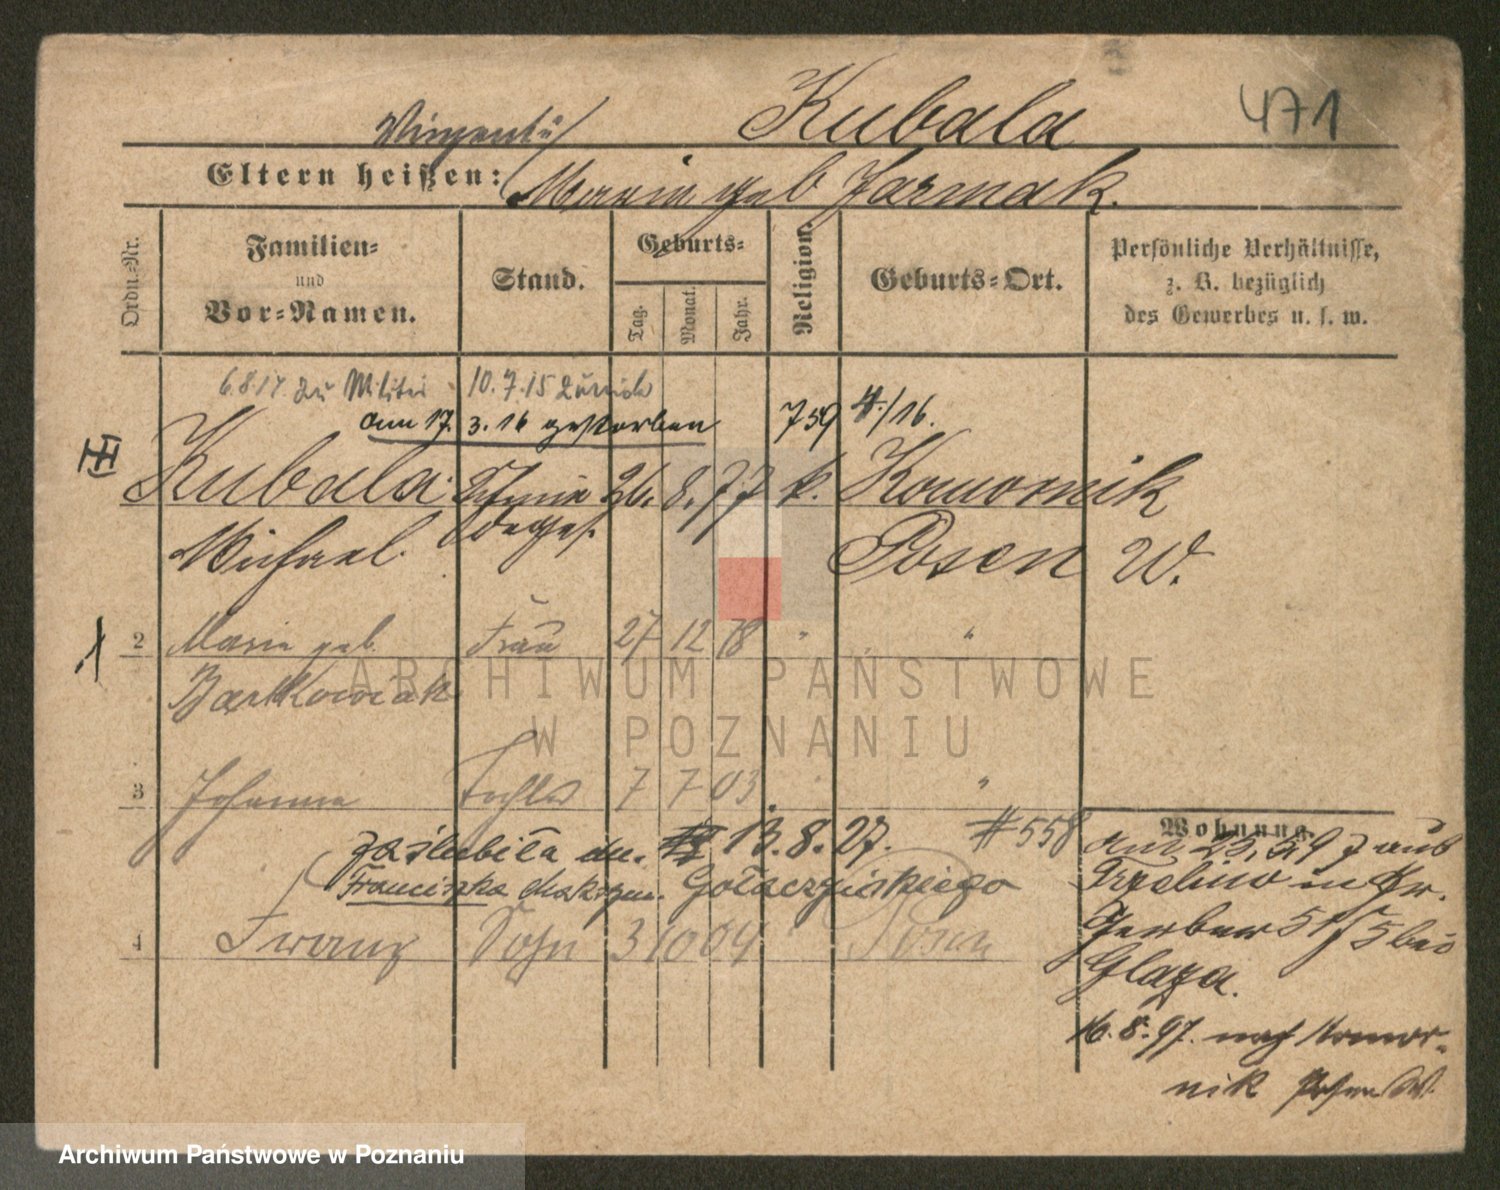 Kubala 471
Vinzent
Eltern heißen: Maria geb Jarmak.
Ordn.-Nr.
Familien-
und
Vor-Namen.
Stand.
Geburts-
Tag.
Monat.
Jahr.
Religion.
Geburts-Ort.
Persönliche Verhältnisse,
z. B. bezüglich
des Gewerbes u. s. w.
6.8.14 zu Militär 10.7.15 zurück
am 17. 3. 16 gestorben 759 4./16.
Kubala 26. 8. 77 k. Komornik
Michael. Posen W.
2 Marie geb. Frau 27 12 78 " "
Bartkowiak
3 Johanna Tochter 7 7 03 "
zaślubiła dn. 13.8.27. #558
Franciszka Gołaczyńskiego
4 Franz Sohn 3 10 04 Posen
Wohnung.
aus
in Kr.
Gerber 5 bei
Glaza.
16.8.97. nach Komor-
nik Posen W.
ARCHIWUM PAŃSTWOWE
W POZNANIU
Archiwum Państwowe w Poznaniu